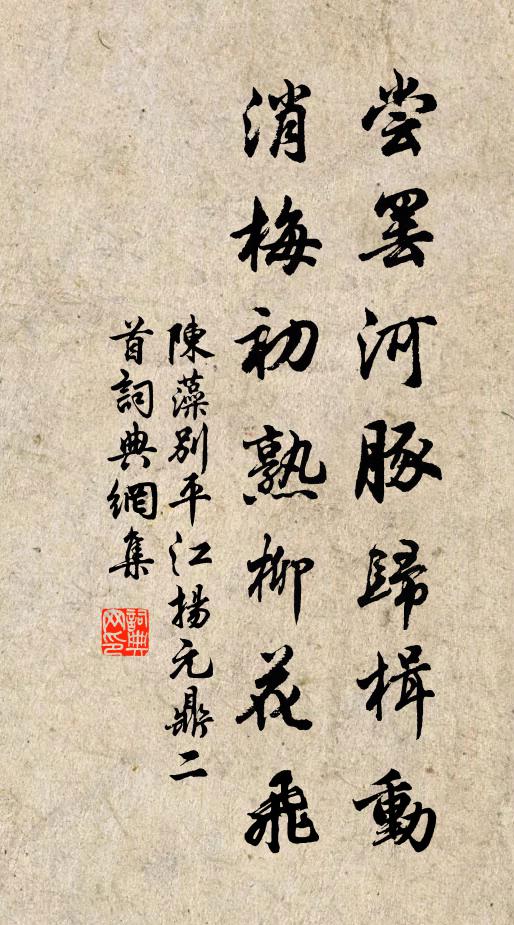 尝罢河豚歸楫動
消梅初熟柳花飛
陳藻別平江揚元鼎二
首詞典網集
詞典
网印